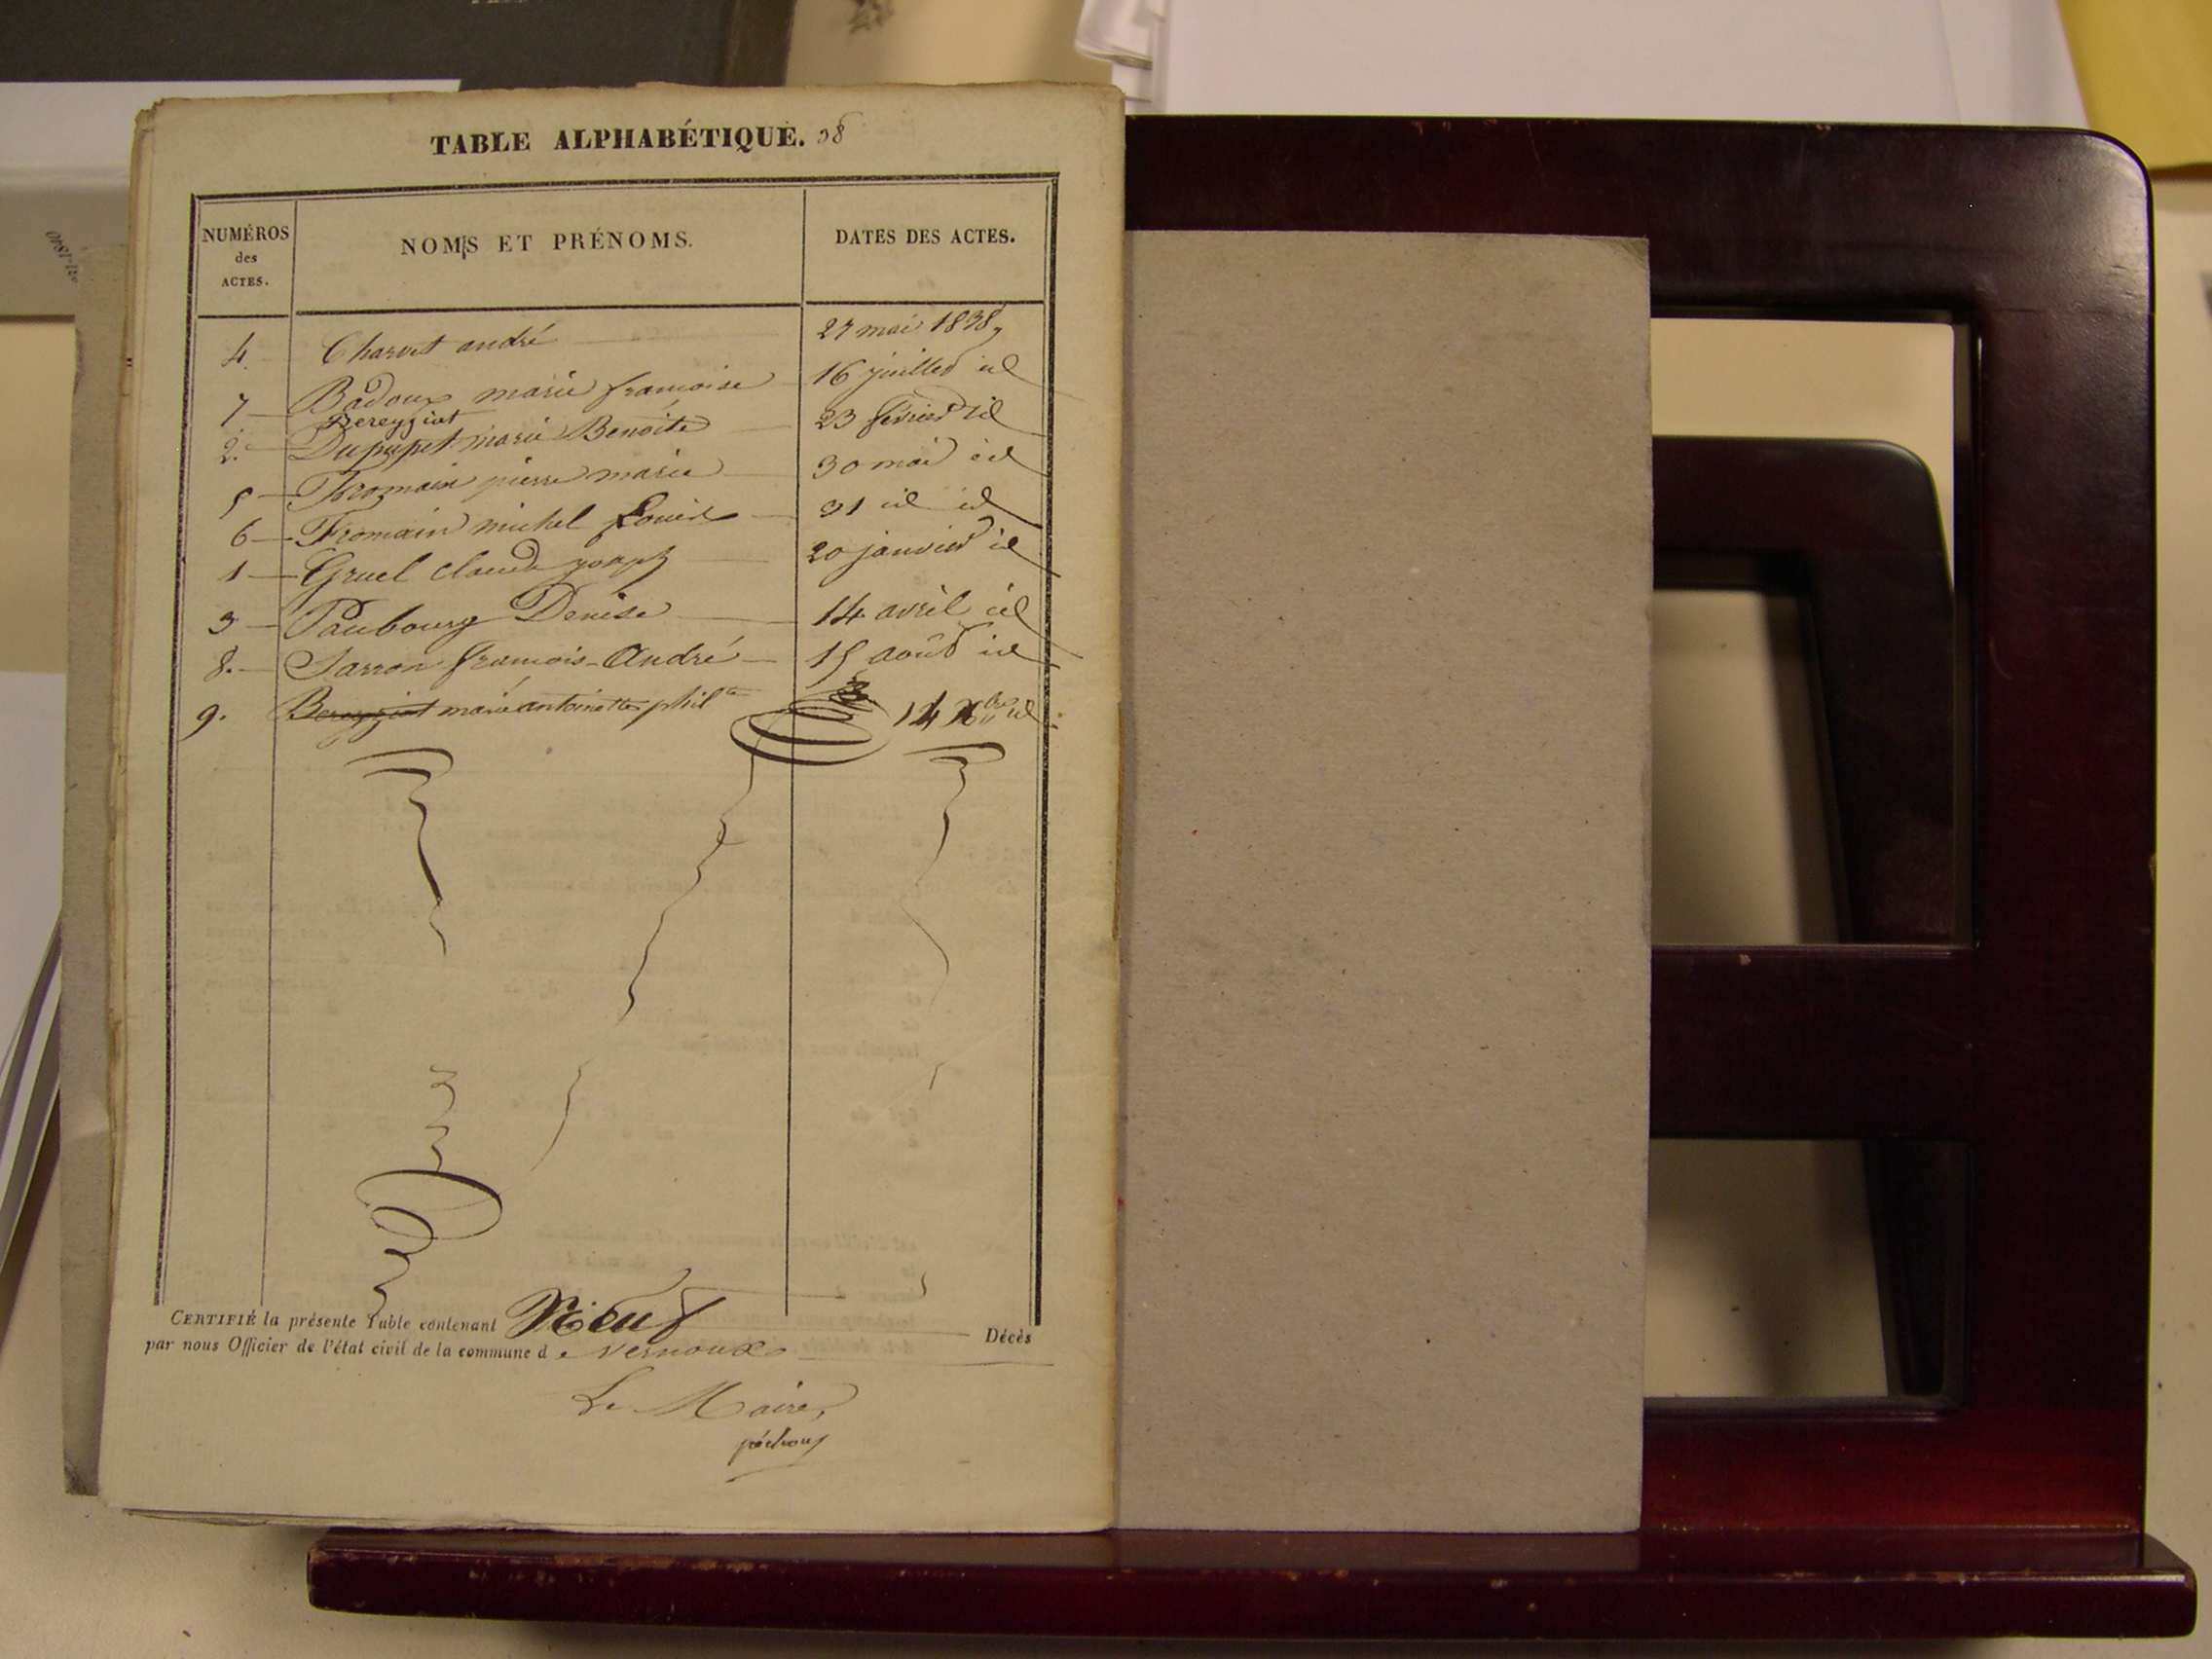 TABLE ALPHABÉTIQUE. 38
NUMÉROS des ACTES. NOMS ET PRÉNOMS. DATES DES ACTES.
4. Charvet andré 27 mai 1838,
7 Badoux marie françoise 16 juillet id
Bereyziat
2. Dupupet marie Benoite 23 février id
5 Fromain pierre marie 30 mai id
6 Fromain michel Louis 31 id id
1 Gruel claude joseph 20 janvier id
3 Paubourg Denise 14 avril id
8. Sarron françois-André 15 août id
9. Bereyziat marie antoinette phil te 14 Xbre id
CERTIFIÉ la présente Table contenant Neuf Décès
par nous Officier de l'état civil de la commune de Vernoux
Le Maire,